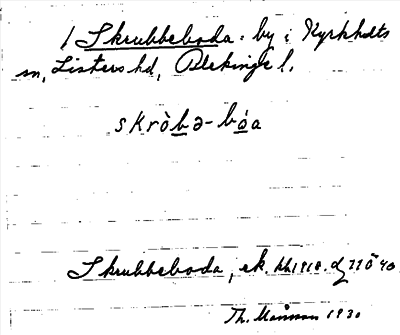 1 Skrubbeboda. by i Kyrkhults
sn, Listers hd, Blekinge l.
skròbə-bóa
Skrubbeboda, ek.
Th. Månsson 1930